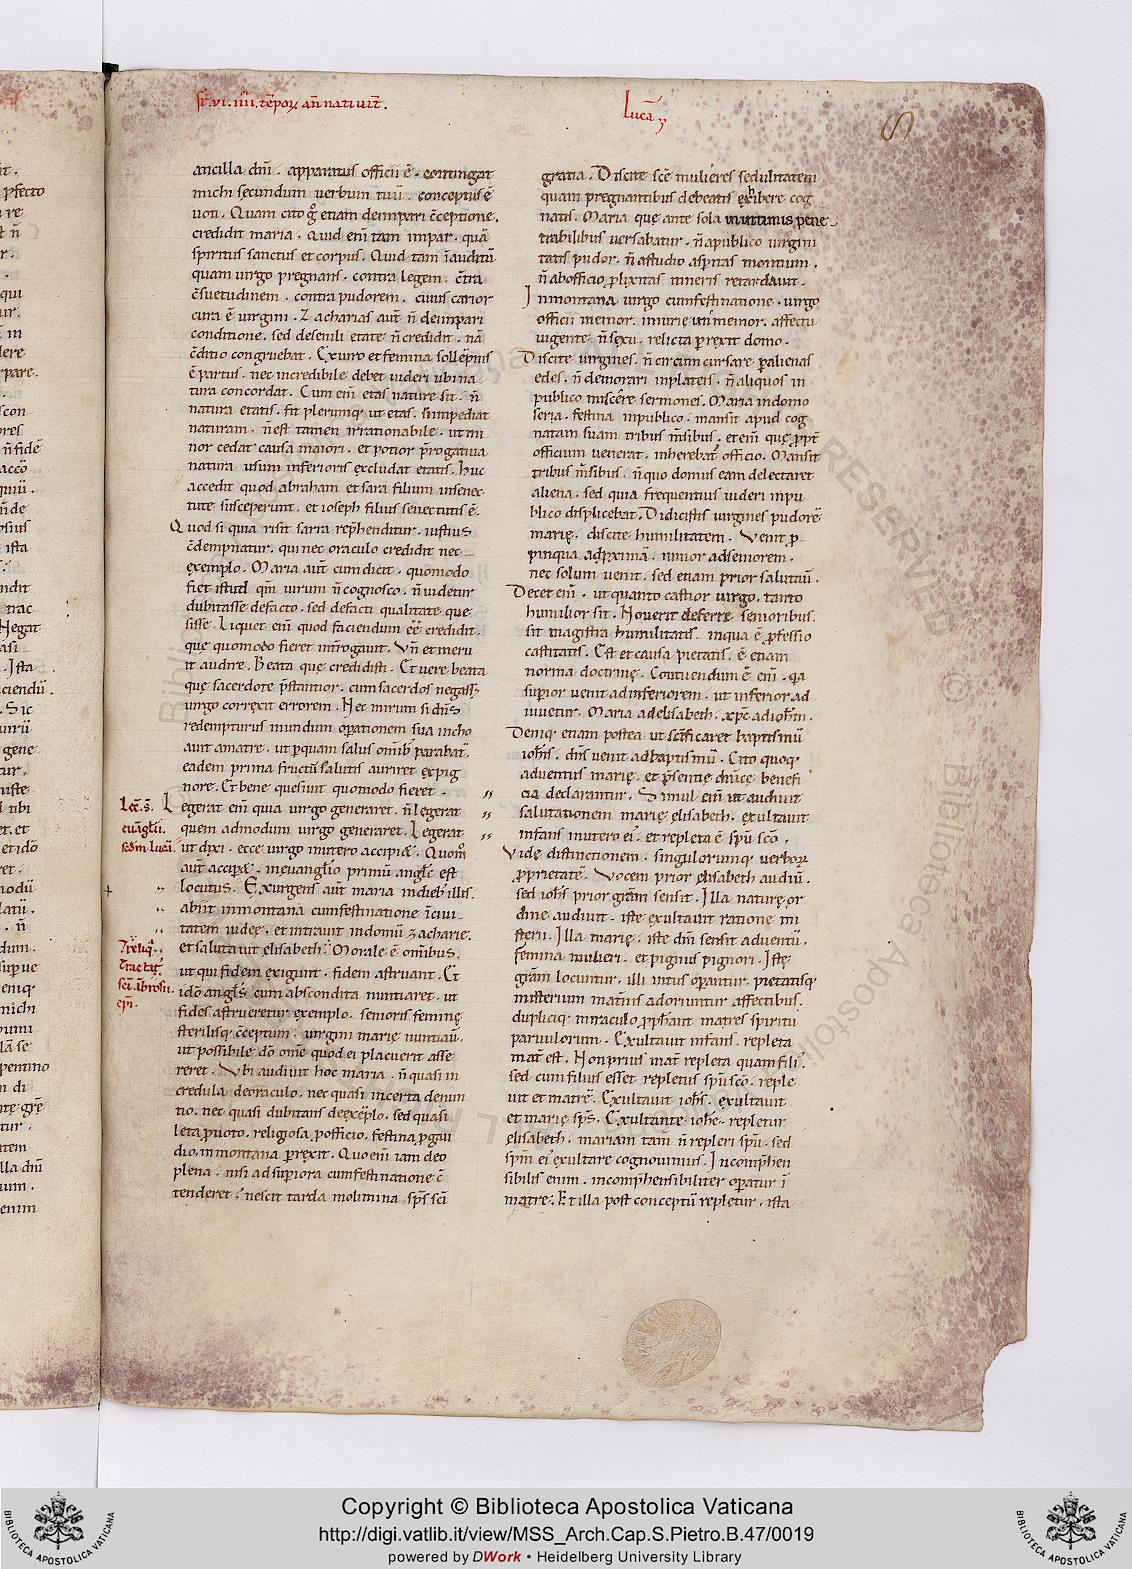 Fr. vi. iiii. tēpoꝝ. an̄ natiuit̄.
Lucā
ancilla dn̄i. apparatus officii ē. contingat
michi secundum uerbum tuū. conceptus ē
uoti. Quam cito g̊ etiam deimpari c̄ceptione.
credidit maria. Quid eni̅ tam impar. quā
spiritus sanctus et corpus. Quid tam īauditū
quam uirgo pregnans. contra legem. c̄tra
c̄suetudinem. contra pudorem. cuius carior
cura ē uirgini. Zacharias aut̄ n̄ deimpari
conditione. sed desenili etate n̄ credidit. nā
c̄ditio congruebat. Ex uiro et femina sollēpnis
ē partus. nec incredibile debet uideri ubi na
tura concordat. Cum eni̅ etas nature sit. n̄
natura etatis. fit plerumq; ut etas. s̄impediat
naturam. n̄ est tamen irrationabile. ut mi
nor cedat causa maiori. et potior p̄rogatiua
natura usum inferioris excludat etatis. Huc
accedit quod abraham et sara filium insenec
tute s̄usceperunt. et ioseph filius senectutis ē.
Quod si quia risit sarra rep̄henditur. iustius
c̄dempnatur. qui nec oraculo credidit nec
exemplo. Maria aut̄ cum dicit. quomodo
fiet istud qm̄ uirum n̄ cognosco. n̄ uidetur
dubitasse defacto. sed defacti qualitate que
sisse. Liquet eni̅ quod faciendum ēē credidit.
que quomodo fieret int̄rogauit. Vn̄ et meru
it audire. Beata que credidisti. Et uere beata
que sacerdote p̄stantior. cum sacerdos negass;
uirgo correxit errorem. Nec mirum si dn̄s
redempturus mundum oꝑationem sua incho
auit amatre. ut ꝑquam salus omib; parabat̄.
eadem prima fructū salutis auriret ex pig
nore. Et bene quesiuit quomodo fieret.
Lec̄. s̄.
Legerat eni̅ quia uirgo generaret. n̄ legerat
euāgłii.
quem admodum uirgo generaret. Legerat
scd̄m lucā.
ut dixi. ecce uirgo inutero accipi&. Quom̊
aut̄ accip&. ineuanglio primū angłs est
locutus. Exurgens aut̄ maria indieb; illis.
abiit inmontana cumfestinatione īciui
tatem iudę. et intrauit indomū zacharie.
7 reliq̄.
et salutauit elisabeth. Morale ē omībus.
Tractat;
ut qui fidem exigunt. fidem astruant. Et
sc̄i. ābrosii.
idō angłs. cum abscondita nuntiaret. ut
ep̄i.
fides astrueretur exemplo. senioris feminę
sterilisq; c̄ceptum. uirgini marię nuntiau̅.
ut possibile dō omē quod ei placuerit asse
reret. Vbi audiuit hoc maria. n̄ quasi in
credula deoraculo. nec quasi incerta denun
tio. nec quasi dubitans deexēplo. sed quasi
leta ꝓuoto. religiosa ꝓofficio. festina ꝓgau
dio. inmontana ꝑrexit. Quo eni̅ iam deo
plena. nisi ad suꝑiora cumfestinatione c̄
tenderet? nescit tarda molimina sp̄s sc̄i
gratia. Discite sc̄e mulieres sedulitatem
quam pregnantibus debeatis exhibere cog
natis. Maria quę ante sola inintimis pene
trabilibus uersabatur. n̄ apublico uirgini
tatis pudor. n̄ astudio asꝑitas montium.
n̄ abofficio ꝓlixitas itineris retardauit.
Inmontana uirgo cumfestinatione. uirgo
officii memor. iniurię inmemor. affectu
uigente n̄ sexu. relicta ꝑrexit domo.
Discite uirgines. n̄ circum cursare ꝑalienas
edes. n̄ demorari inplateis. n̄ aliquos in
publico miscēre sermones. Maria indomo
seria. festina inpublico. mansit apud cog
natam suam tribus m̄sibus. et eni̅ quę ꝓpt̄
officium uenerat. inherebat officio. Mansit
tribus m̄sibus. n̄ quo domus eam delectaret
aliena. sed quia frequentius uideri inpu
blico displicebat. Didicistis uirgines pudorē
marię. discite humilitatem. Venit ꝓ
pinqua adꝓximā. iunior adseniorem.
nec solum uenit. sed etiam prior salutauit.
Decet eni̅. ut quanto castior uirgo. tanto
humilior sit. Nouerit deferre senioribus.
sit magistra humilitatis. inqua ē ꝓfessio
castitatis. Est et causa pietatis. ē etiam
norma doctrinę. Contuendum ē eni̅. qa
suꝑior uenit adinferiorem. ut inferior ad
iuuetur. Maria adelisabeth. xp̄c adioħm.
Deniq; etiam postea ut sc̄ificaret baptismū
ioħis. dn̄s uenit adbaptismū. Cito quoq;
aduentus marię. et p̄sentię diuinę benefi
cia declarantur. Simul eni̅ ut audiuit
salutationem marię elisabeth. exultauit
infans inutero ei;. et repleta ē sp̄u sc̄o.
Vide distinctionem. singulorumq; uerboꝝ
ꝓprietatē. Vocem prior elisabeth audiu̅.
sed ioħs prior gr̄am sensit. Illa naturę or
dine audiuit. iste exultauit ratione mi
sterii. Illa marię. iste dn̄i sensit aduentū.
femina mulieri. et pignus pignori. Istę
gr̄am locuntur. illi intus oꝑantur. pietatisq;
misterium mat̄nis adoriuntur affectibus.
dupliciq; miraculo ꝓph̄ant matres spiritu
paruulorum. Exultauit infans. repleta
mat̄ est. Non prius mat̄ repleta quam fili;.
sed cum filius esset repletus sp̄u sc̄o. reple
uit et matrē. Exultauit ioħs. exultauit
et marię sp̄s. Exultante ioħe. repletur
elisabeth. mariam tam̄ n̄ repleri sp̄u. sed
sp̄m ei; exultare cognouimus. Incomp̄hen
sibilis enim. incomp̄hensibiliter oꝑatur ī
matre. Et illa post conceptū repletur. ista
RESERVED
Copyright © Biblioteca Apostolica Vaticana
http://digi.vatlib.it/view/MSS_Arch.Cap.S.Pietro.B.47/0019
powered by DWork • Heidelberg University Library
BIBLIOTECA APOSTOLICA VATICANA
BIBLIOTECA APOSTOLICA VATICANA